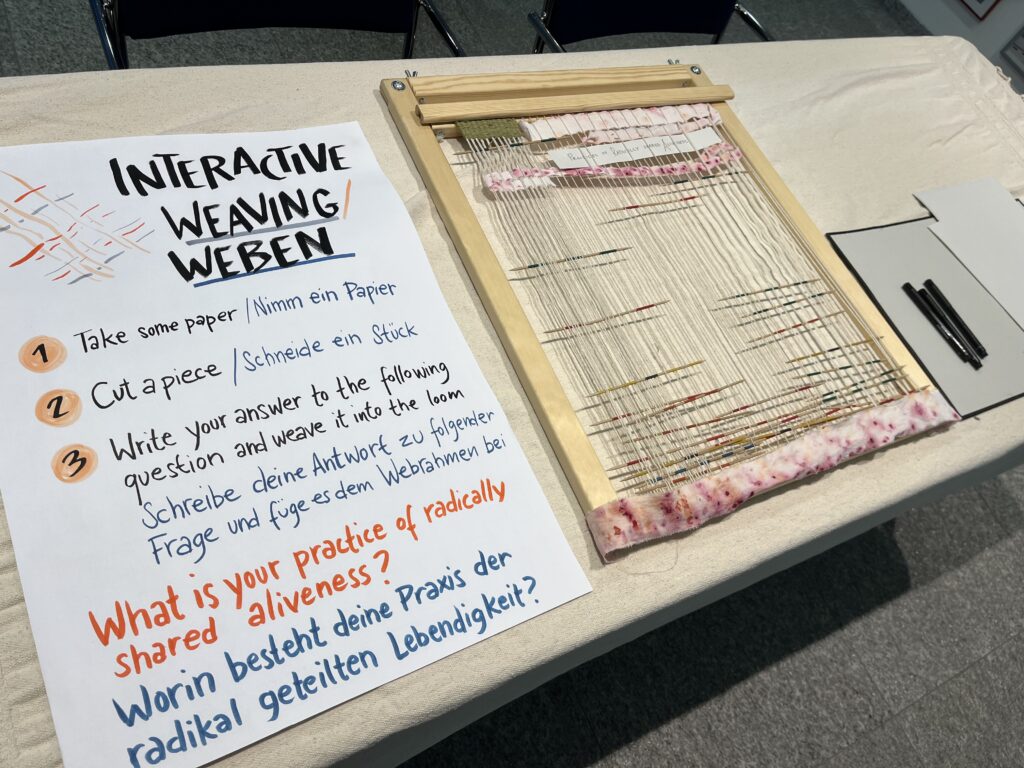 INTERACTIVE
WEAVING/
WEBEN
1 Take some paper / Nimm ein Papier
2 Cut a piece / Schneide ein Stück
3 Write your answer to the following
question and weave it into the loom
Schreibe deine Antwort zu folgender
Frage und füge es dem Webrahmen bei
What is your practice of radically
shared aliveness?
Worin besteht deine Praxis der
radikal geteilten Lebendigkeit?
PRACTICES OF RADICALLY SHARED ALIVENESS